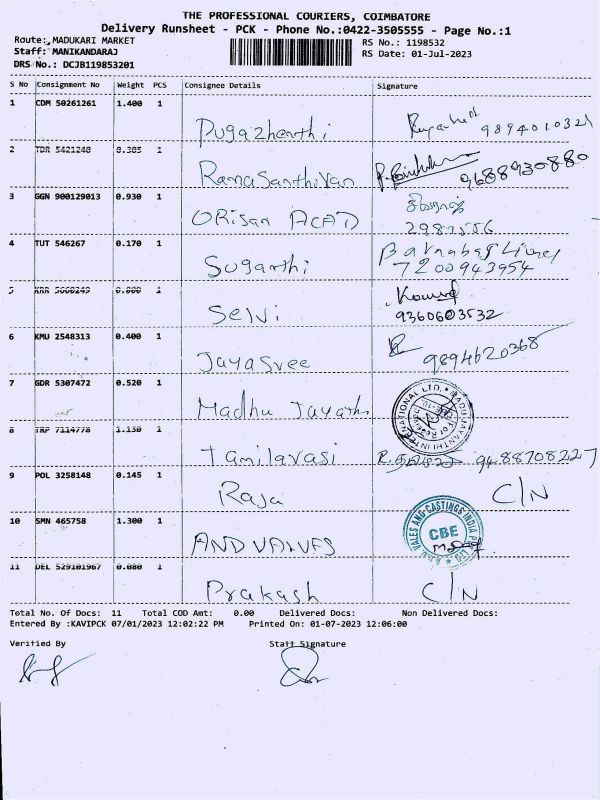 THE PROFESSIONAL COURIERS, COIMBATORE
Delivery Runsheet - PCK - Phone No.:0422-3505555 - Page No.:1
Route: MADUKARI MARKET
RS No.: 1198532
Staff: MANIKANDARAJ
RS Date: 01-Jul-2023
DRS No.: DCJB119853201
S No Consignment No Weight PCS Consignee Details Signature
1 CDM 50261261 1.400 1
Pugazhenthi 9894010321
2 TDR 5421248 0.385 1
Ramasanthiyan 9688930880
3 GGN 900129013 0.930 1
ORiSan ACAD
4 TUT 546267 0.170 1
Suganthi 7200943954
5
Selvi 9360603532
6 KMU 2548313 0.400 1
Jayasree 9894620368
7 GDR 5307472 0.520 1
Madhu Jayanthi
8 TRP 7114778 1.130 1
Tamilavasi 9488708227
9 POL 3258148 0.145 1
Raja C/N
10 SMN 465758 1.300 1
AND VALVES CBE
11 DEL 529101967 0.080 1
Prakash C/N
Total No. Of Docs: 11 Total COD Amt: 0.00 Delivered Docs: Non Delivered Docs:
Entered By :KAVIPCK 07/01/2023 12:02:22 PM Printed On: 01-07-2023 12:06:00
Verified By Staff Signature